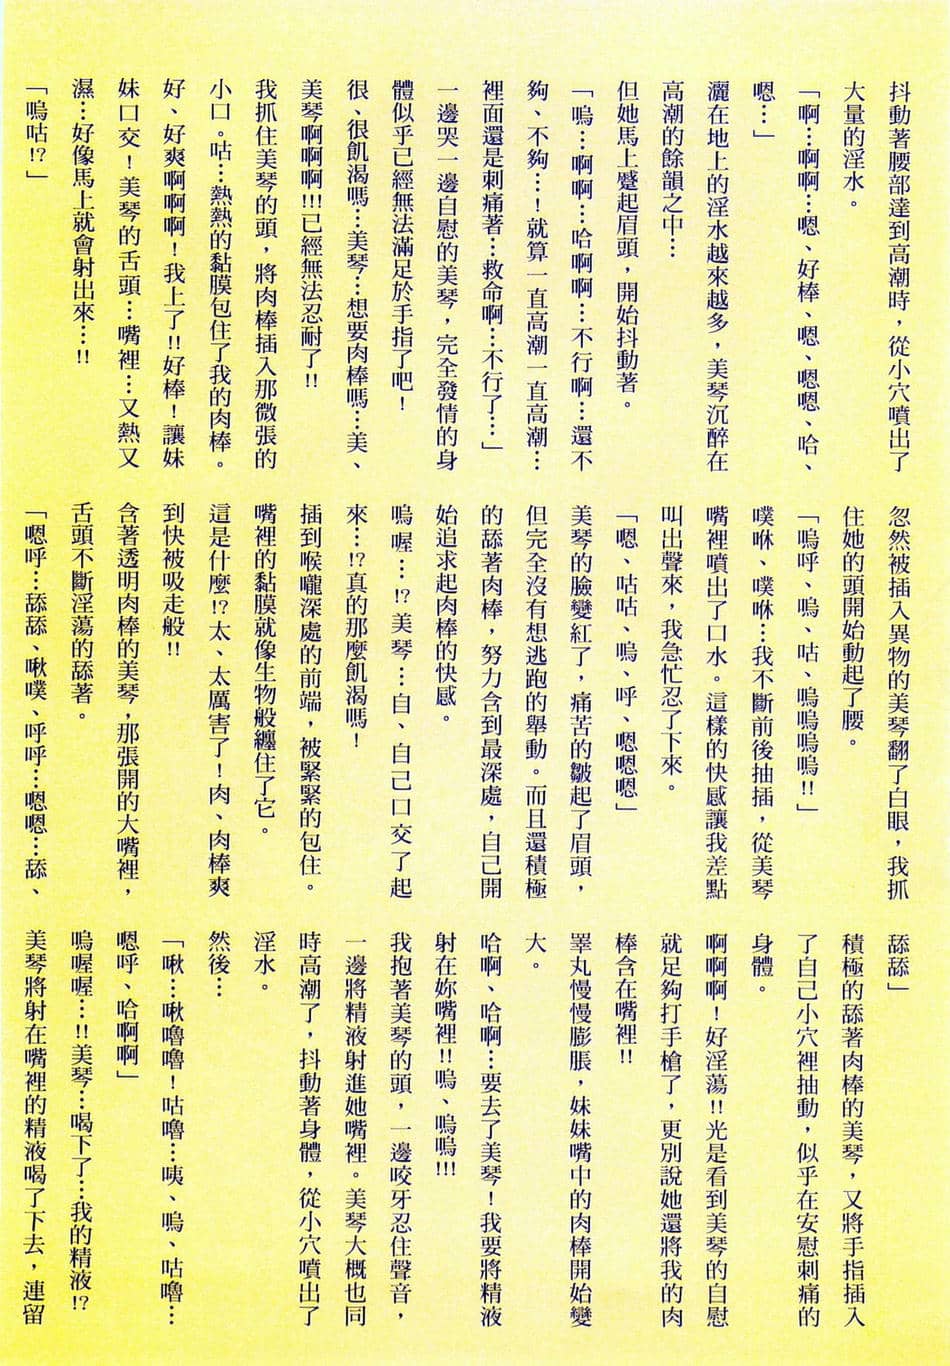 抖動著腰部達到高潮時，從小穴噴出了
大量的淫水。
「啊…啊啊…嗯、好棒、嗯、嗯嗯、哈、
嗯…」
灑在地上的淫水越來越多，美琴沉醉在
高潮的餘韻之中…
但她馬上蹙起眉頭，開始抖動著。
「嗚…啊啊…哈啊啊…不行啊…還不
夠、不夠…！就算一直高潮一直高潮…
裡面還是刺痛著…救命啊…不行了…」
一邊哭一邊自慰的美琴，完全發情的身
體似乎已經無法滿足於手指了吧！
很、很飢渴嗎…美琴…想要肉棒嗎…美、
美琴啊啊啊!!!已經無法忍耐了!!
我抓住美琴的頭，將肉棒插入那微張的
小口。咕…熱熱的黏膜包住了我的肉棒。
好、好爽啊啊啊！我上了!!好棒！讓妹
妹口交！美琴的舌頭…嘴裡…又熱又
濕…好像馬上就會射出來…!!
「嗚咕!?」
忽然被插入異物的美琴翻了白眼，我抓
住她的頭開始動起了腰。
「嗚呼、嗚、咕、嗚嗚嗚嗚!!」
噗咻、噗咻…我不斷前後抽插，從美琴
嘴裡噴出了口水。這樣的快感讓我差點
叫出聲來，我急忙忍了下來。
「嗯、咕咕、嗚、呼、嗯嗯嗯」
美琴的臉變紅了，痛苦的皺起了眉頭，
但完全沒有想逃跑的舉動。而且還積極
的舔著肉棒，努力含到最深處，自己開
始追求起肉棒的快感。
嗚喔…!?美琴…自、自己口交了起
來…!?真的那麼飢渴嗎！
插到喉嚨深處的前端，被緊緊的包住。
嘴裡的黏膜就像生物般纏住了它。
這是什麼!?太、太厲害了！肉、肉棒爽
到快被吸走般!!
含著透明肉棒的美琴，那張開的大嘴裡，
舌頭不斷淫蕩的舔著。
「嗯呼…舔舔、啾噗、呼呼…嗯嗯…舔、
舔舔」
積極的舔著肉棒的美琴，又將手指插入
了自己小穴裡抽動，似乎在安慰刺痛的
身體。
啊啊啊！好淫蕩!!光是看到美琴的自慰
就足夠打手槍了，更別說她還將我的肉
棒含在嘴裡!!
睪丸慢慢膨脹，妹妹嘴中的肉棒開始變
大。
哈啊、哈啊…要去了美琴！我要將精液
射在妳嘴裡!!嗚、嗚嗚!!!
我抱著美琴的頭，一邊咬牙忍住聲音，
一邊將精液射進她嘴裡。美琴大概也同
時高潮了，抖動著身體，從小穴噴出了
淫水。
然後…
「啾…啾嚕嚕！咕嚕…咦、嗚、咕嚕…
嗯呼、哈啊啊」
嗚喔喔…!!美琴…喝下了…我的精液!?
美琴將射在嘴裡的精液喝了下去，連留